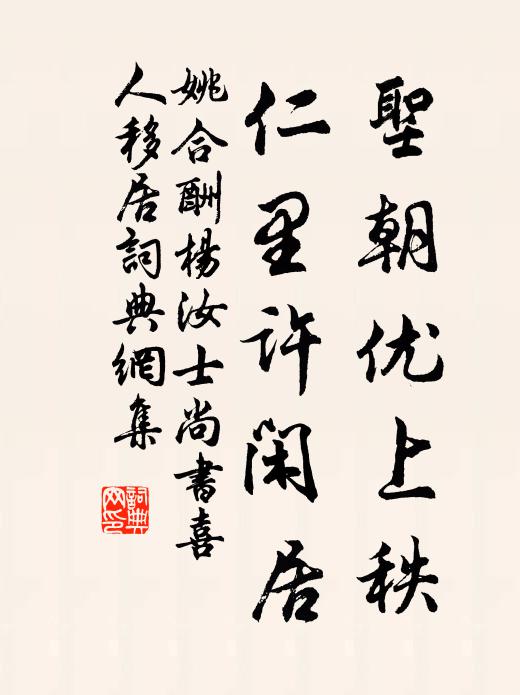 聖朝优上秩
仁里许闲居
姚合酬楊汝士尚書喜
人移居詞典網集
詞典
网印